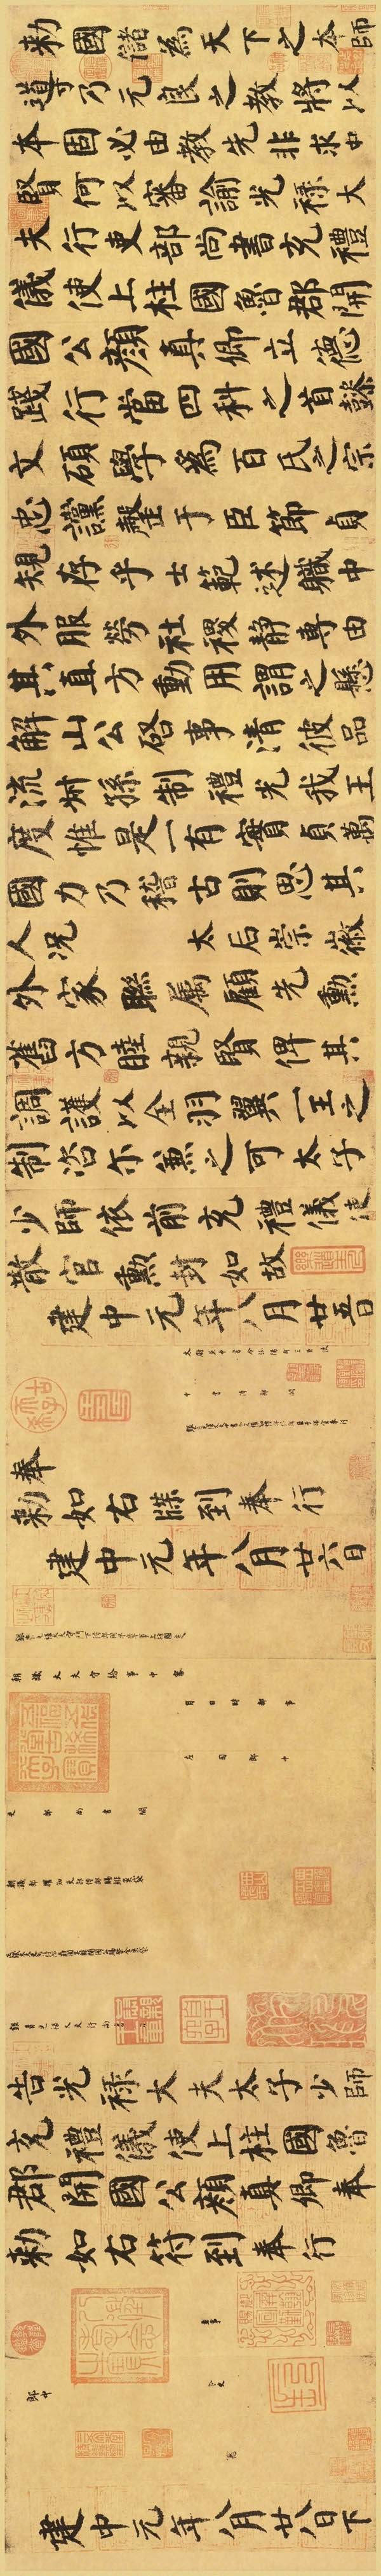 勅國儲為天下之本師
導乃元良之教將以
本固必由教先非求中
賢何以審諭光祿大
夫行吏部尚書充禮
儀使上柱國魯郡開
國公顏真卿立德
踐行當四科之首懿
文碩學為百氏之宗
忠讜罄于臣節貞
規存乎士範述職中
外服勞社稷靜專由
其直方動用謂之懸
解山公啓事清彼品
流叔孫制禮光我王
度惟是一有實貞萬
國力乃稽古則思其
人況 太后崇徽
外家聯屬顧先勳
舊方睦親賢俾其
調護以全羽翼一王之
制咨尔兼之可太子
少師依前充禮儀使
散官勳封如故
建中元年八月廿五日
中書侍郎闕
奉
勅如右牒到奉行
建中元年八月廿六日
朝議大夫守給事中審
月日時都事
左司郎中
吏部尚書闕
告光祿大夫太子少師
充禮儀使上柱國魯
郡開國公顏真卿奉
勅如右符到奉行
主事
郎中
令史
建中元年八月廿八日下